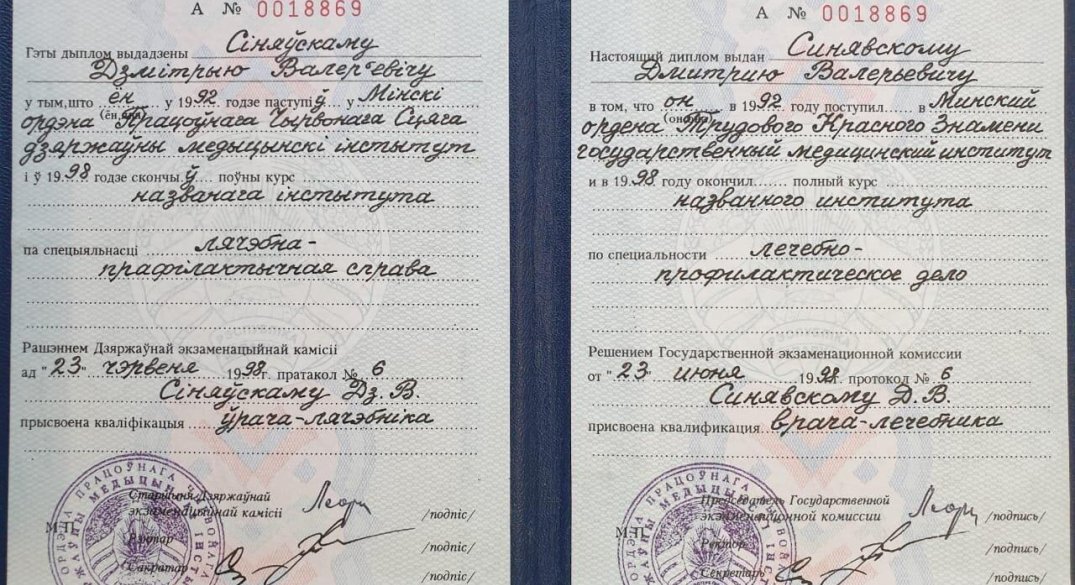 А № 0018869
Гэты дыплом выдадзены Сіняўскаму
Дзмітрыю Валер'евічу
у тым,што ён у 1992 годзе паступіў у Мінскі
(ён,яна)
ордэна Працоўнага Чырвонага Сцяга
дзяржаўны медыцынскі інстытут
і ў 1998 годзе скончыў поўны курс
названага інстытута
па спецыяльнасці лячэбна-
прафілактычная справа
Рашэннем Дзяржаўнай экзаменацыйнай камісіі
ад "23" чэрвеня 1998г. пратакол № 6
Сіняўскаму Дз. В.
прысвоена кваліфікацыя ўрача-лячэбніка
Старшыня Дзяржаўнай
экзаменацыйнай камісіі /подпіс/
М.П.
Рэктар /подпіс/
Сакратар /подпіс/
А № 0018869
Настоящий диплом выдан Синявскому
Дмитрию Валерьевичу
в том, что он в 1992 году поступил в Минский
(он,она)
ордена Трудового Красного Знамени
государственный медицинский институт
и в 1998 году окончил полный курс
названного института
по специальности лечебно-
профилактическое дело
Решением Государственной экзаменационной комиссии
от "23" июня 1998г. протокол № 6
Синявскому Д.В.
присвоена квалификация врача-лечебника
Председатель Государственной
экзаменационной комиссии /подпись/
М.П.
Ректор /подпись/
Секретарь /подпись/